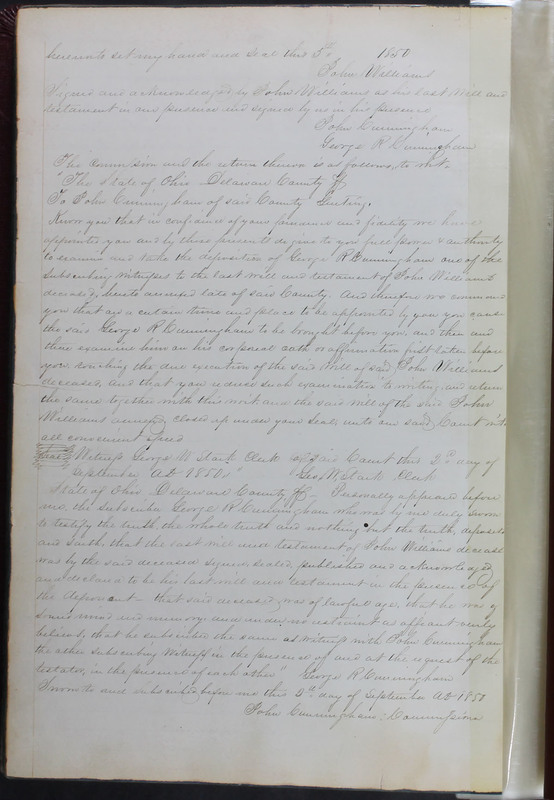 hereunto set my hand and seal this 5th 1850
John Williams
Signed and acknowledged by John Williams as his last will and
testament in our presence and signed by us in his presence
John Cunningham
George R Cunningham
The Commission and the return thereon is as follows, to wit.
"The State of Ohio Delaware County ss
To John Cunningham of said County Greeting.
Know you that in confidence of your prudence and fidelity we have
appointed you and by these presents do give to you full power & authority
to examine and take the deposition of George R Cunningham one of the
subscribing witnesses to the last will and testament of John Williams
deceased, hereto annexed late of said County. And therefore we command
you that at a certain time and place to be appointed by you you cause
the said George R Cunningham to be brought before you, and then and
there examine him on his corporeal oath or affirmation first taken before
you touching the due execution of the said will of said John Williams
deceased, and that you reduce such examination to writing, and return
the same together with this writ and the said will of the said John
Williams annexed, closed up under your seal, unto our said Court with
all convenient speed
Seal Witness George W. Stark Clerk of said Court this 2d day of
September AD 1850." Geo W. Stark Clerk
State of Ohio Delaware County ss Personally appeared before
me, the subscriber George R Cunningham who was by me duly sworn
to testify the truth, the whole truth and nothing but the truth, deposeth
and saith, that the last will and testament of John Williams deceased
was by the said deceased signed, sealed, published and acknowledged,
and declared to be his last will and testament in the presence of
the deponent - that said deceased, was of lawful age, that he was of
sound mind and memory and under no restraint as affiant verily
believes, that he subscribed the same as witness with John Cunningham
the other subscribing witness in the presence of and at the request of the
testator, in the presence of each other" George R Cunningham
Sworn to and subscribed before me this 2d day of September AD 1850
John Cunningham, Commissioner